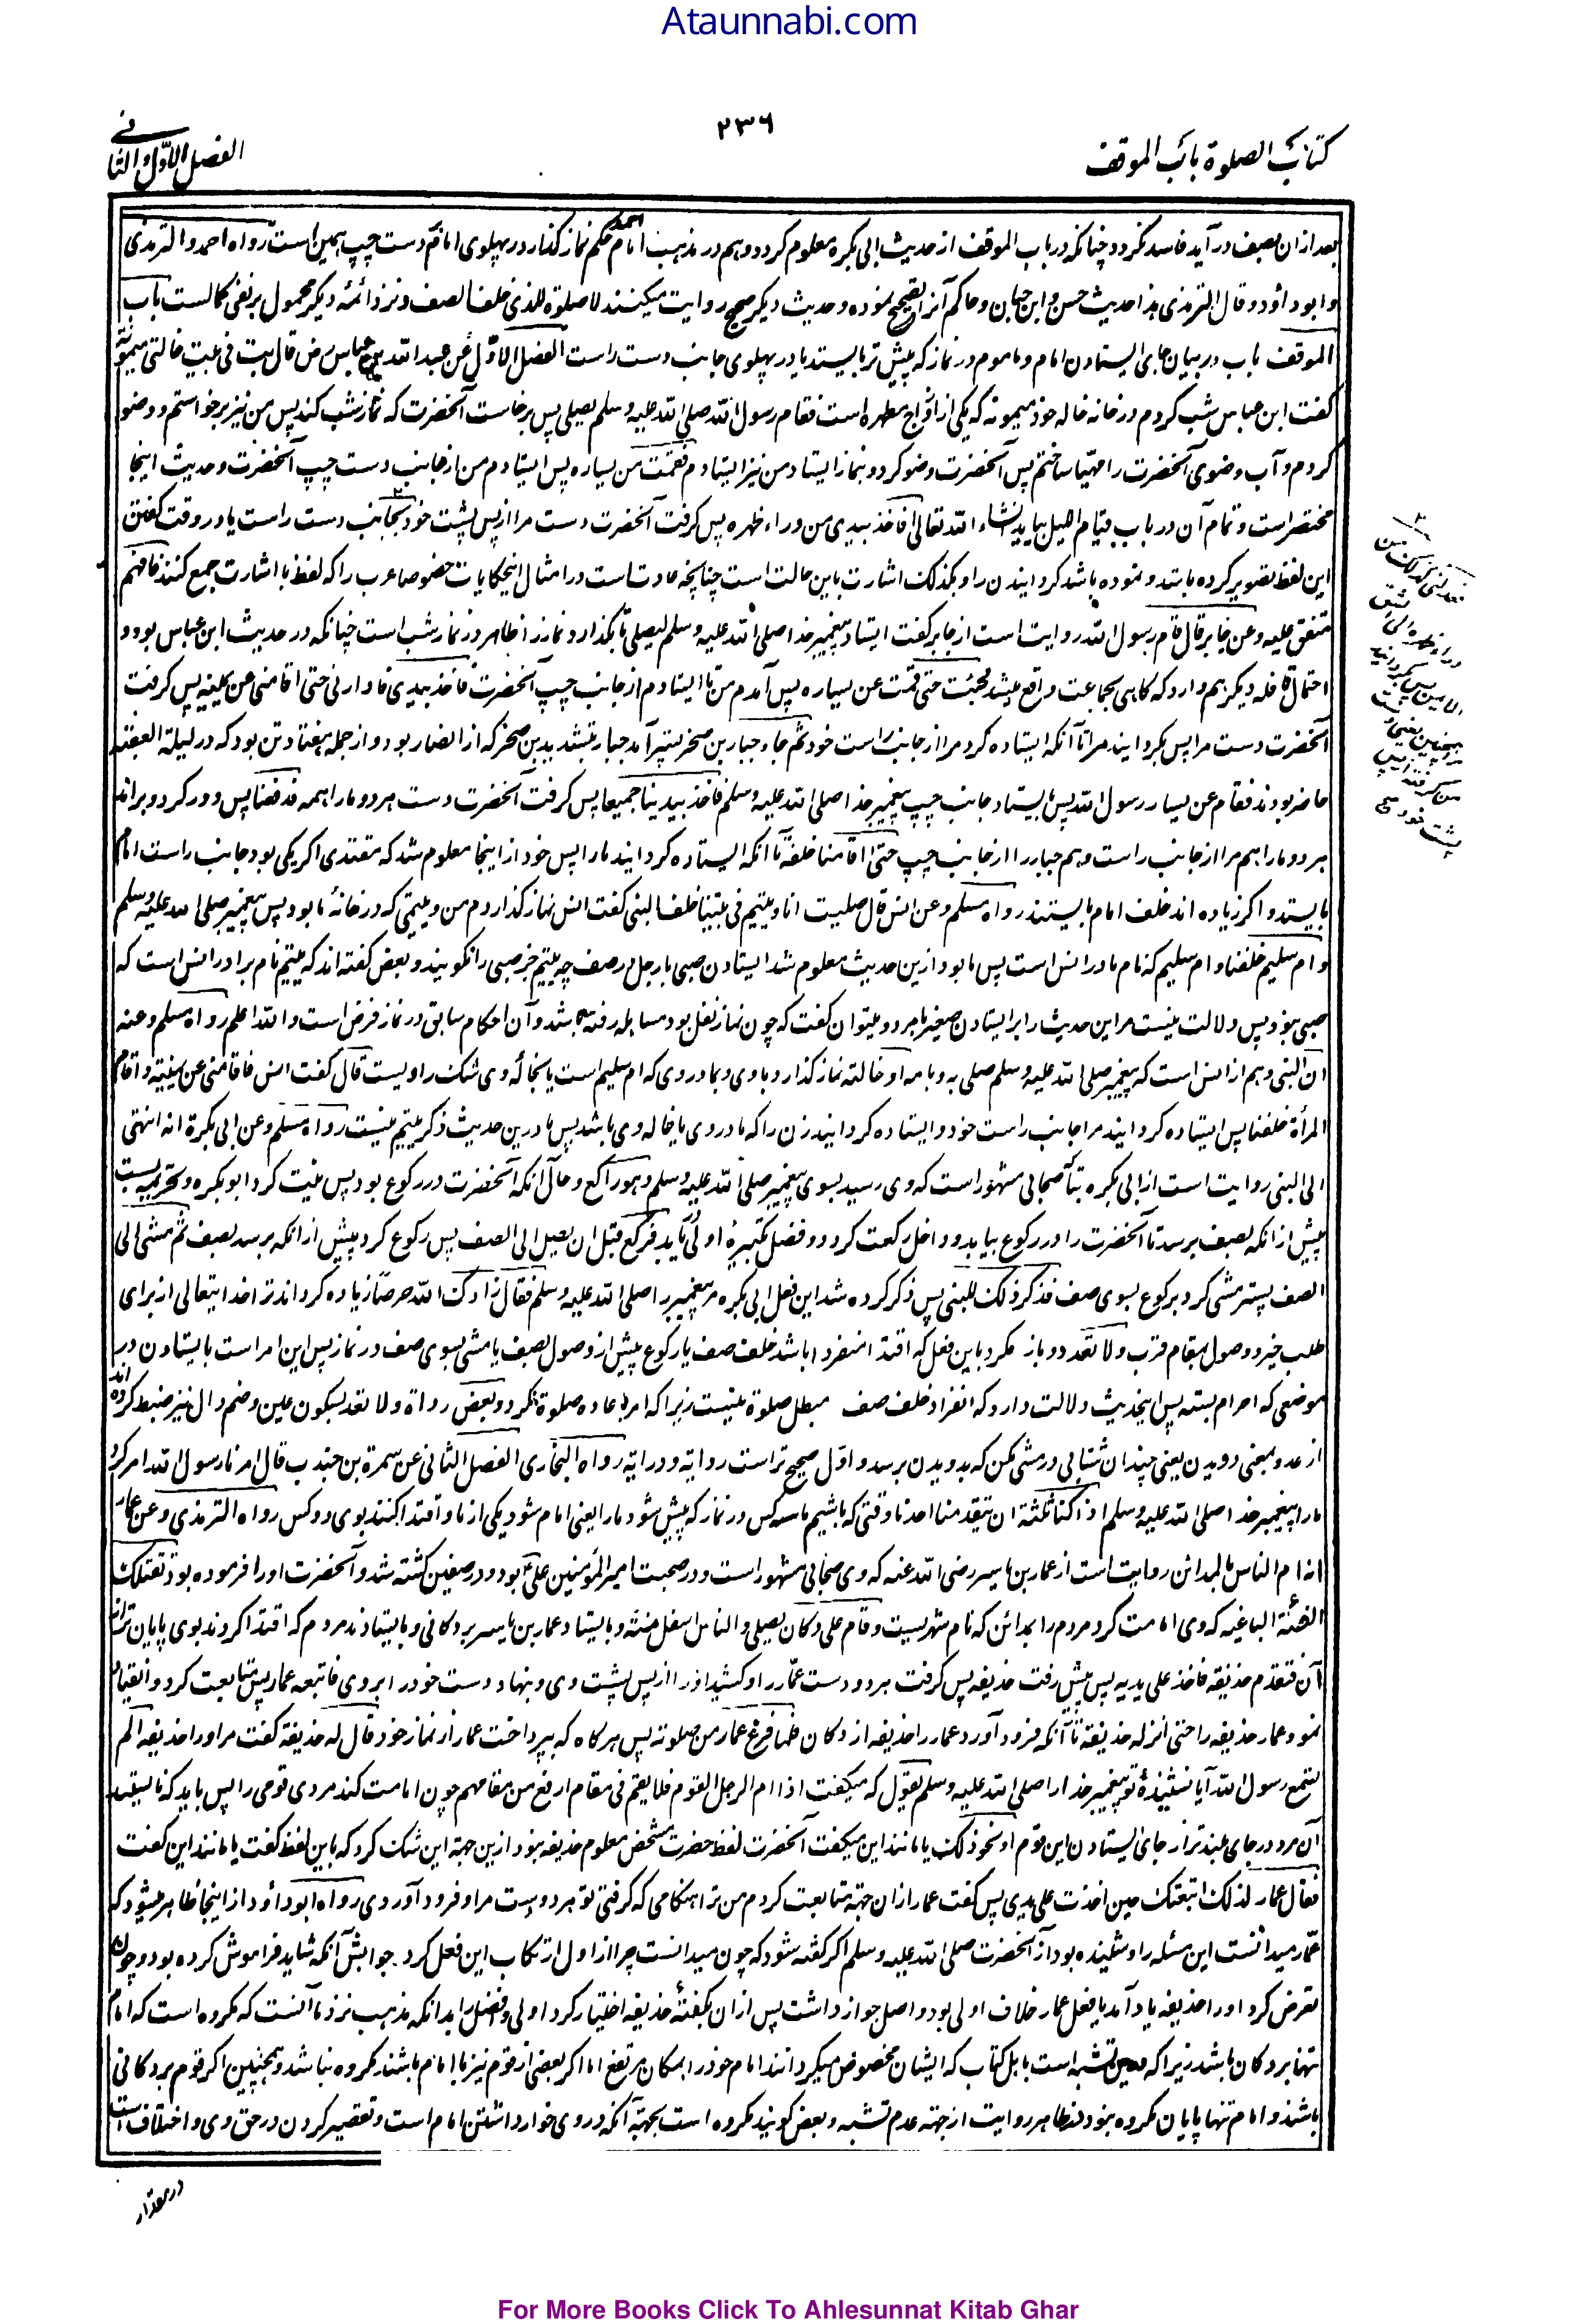 Ataunnabi.com
کتاب الصلوة باب الموقف
۲۳۶
الفصل الاول والثانی
بعد ازان بصف درآید فاسد نگردد چنانکه در باب الموقف از حدیث ابی بکره معلوم گردد و هم در مذهب امام احمد حکم نماز گذار در پهلوی امام دست چپ همین است رواه احمد والترمذی
وابوداؤد وقال الترمذی هذا حدیث حسن وابن حبان وحاکم آنرا تصحیح نموده و حدیث دیگر صحیح روایت میکنند لا صلوة للذی خلف الصف و نزد ائمه دیگر محمول بر نفی کمالست باب
الموقف باب در بیان جای ایستادن امام و ماموم در نماز که پیش تر بایستد یا در پهلوی جانب دست راست الفصل الاول عن عبد الله بن عباس رض قال بت فی بیت خالتی میمونة
گفت ابن عباس شب کردم در خانه خاله خود میمونه که یکی از ازواج مطهره است فقام رسول الله صلی الله علیه وسلم یصلی پس برخاست آنحضرت که نماز شب کند پس من نیز برخواستم و وضو
کردم و آب وضوی آنحضرت را مهیا ساختم پس آنحضرت وضو کرد و بنماز ایستاد من نیز ایستادم فقمت عن یساره پس ایستادم من از جانب دست چپ آنحضرت و حدیث اینجا
مختصر است و تمام آن در باب قیام اللیل بیاید انشاء الله تعالی فاخذ بیدی من وراء ظهره پس گرفت آنحضرت دست مرا از پس پشت خود بجانب دست راست یا در وقت گفتن
این لفظ تصویر کرده باشد و نموده باشد گردانیدن را و بکذلک اشارت باین حالت است چنانچه عادت است در امثال این حکایات خصوصا عرب را که لفظ با اشارت جمع کنند فافهم
متفق علیه وعن جابر قال قام رسول الله روایت است از جابر گفت ایستاد پیغمبر خدا صلی الله علیه وسلم لیصلی تا بگذارد نماز را ظاهر در نماز شب است چنانکه در حدیث ابن عباس بود و
احتمال نافله دیگر هم دارد که گاهی بجماعت واقع میشد فجئت حتی قمت عن یساره پس آمدم من تا ایستادم از جانب چپ آنحضرت فاخذ بیدی فادارنی حتی اقامنی عن یمینه پس گرفت
آنحضرت دست مرا پس بگردانید مرا تا آنکه ایستاده کرد مرا از جانب راست خود ثم جاء جبار بن صخر پستر آمد جبار بتشدید بن صخر که از انصار بود و از جمله هفتاد تن بود که در لیلة العقبة
حاضر بودند فقام عن یسار رسول الله پس بایستاد جانب چپ پیغمبر خدا صلی الله علیه وسلم فاخذ بیدینا جمیعا پس گرفت آنحضرت دست هر دو ما را همه فدفعنا پس دور کرد و براند
هر دو ما را هم مرا از جانب راست و هم جبار را از جانب چپ حتی اقامنا خلفه تا آنکه ایستاده گردانید ما را پس خود از اینجا معلوم شد که مقتدی اگر یکی بود جانب راست امام
بایستد و اگر زیاده اند خلف امام بایستند رواه مسلم وعن انس قال صلیت انا ویتیم فی بیتنا خلف النبی گفت انس نماز گذاردم من و یتیمی که در خانهٔ ما بود پس پیغمبر صلی الله علیه وسلم
وام سلیم خلفنا و ام سلیم که نام مادر انس است پس ما بود ازین حدیث معلوم شد ایستادن صبی با رجل در صف چه یتیم جز صبی را نگویند و بعض گفته اند که یتیم نام برادر انس است که
صبی نبود پس دلالت نیست مر این حدیث را بر ایستادن صغیر با مرد و میتوان گفت که چون نماز نفل بود مساهله رفته باشد و آن احکام سابق در نماز فرض است والله اعلم رواه مسلم وعنه
ان النبی و هم از انس است که پیغمبر صلی الله علیه وسلم صلی به وبامه او خالته نماز گذارد با وی و بمادر وی که ام سلیم است یا بخالهٔ وی شک راویست قال گفت انس فاقامنی عن یمینه واقام
المرأة خلفنا پس ایستاده گردانید مرا جانب راست خود و ایستاده گردانید زن را که مادر وی یا خاله وی باشد پس ما درین حدیث ذکر یتیم نیست رواه مسلم وعن ابی بکرة انه انتهی
الی النبی روایت است از ابی بکره بتا صحابی مشهور است که وی رسید بسوی پیغمبر صلی الله علیه وسلم وهو راکع و حال آنکه آنحضرت در رکوع بود پس نیت کرد ابو بکره و تحریمه بست
پیش از آنکه بصف برسد تا آنحضرت را در رکوع بیابد و داخل رکعت گردد و فضل تکبیرهٔ اولی یابد فرکع قبل ان یصل الی الصف پس رکوع کرد پیش از آنکه برسد بصف ثم مشی الی
الصف پستر مشی کرد برکوع بسوی صف فذکر ذلک للنبی پس ذکر کرده شد این فعل ابی بکره مر پیغمبر را صلی الله علیه وسلم فقال زادک الله حرصا زیاده گرداند ترا خدایتعالی از برای
طلب خیر و وصول بمقام قرب ولا تعد و باز مگرد باین فعل که اقتدا منفردا باشد خلف صف یا رکوع پیش از وصول بصف یا مشی بسوی صف در نماز پس این امر است بایستادن در
موضعی که احرام بسته پس اینحدیث دلالت دارد که انفراد خلف صف مبطل صلوة نیست زیراکه امر باعاده صلوة نکرد و بعض رواة ولا تعد بسکون عین وضم دال نیز ضبط کرده اند
از عدو بمعنی دویدن یعنی چندان شتابی در مشی مکن که بدویدن برسد و اول صحیح تر است روایة و درایة رواه البخاری الفصل الثانی عن سمرة بن جندب قال امرنا رسول الله امر کرد
ما را پیغمبر خدا صلی الله علیه وسلم اذا کنا ثلثة ان یتقدمنا احدنا وقتی که باشیم ما سه کس در نماز که پیش شود ما را یعنی امام شود یکی از ما و اقتدا کنند بوی دو کس رواه الترمذی وعن عمار
انه ام الناس بالمدائن روایت است از عمار بن یاسر رضی الله عنه که وی صحابی مشهور است و در صحبت امیر المؤمنین علی بود و در صفین کشته شد و آنحضرت او را فرموده بود تقتلک
الفئة الباغیه که وی امامت کرد مردم را بمدائن که نام شهریست وقام علی دکان یصلی والناس اسفل منه و بایستاد عمار بن یاسر بر دکانی و بایستادند مردم که اقتدا کردند بوی پایان تر از
آن فتقدم حذیفة فاخذ علی یدیه پس پیش رفت حذیفه پس گرفت هر دو دست عمار را و کشید او را از پس پشت وی و بنهاد دست خود را بروی فاتبعه عمار پس متابعت کرد و انقیاد
نمود عمار حذیفه را حتی انزله حذیفة تا آنکه فرود آورد عمار را حذیفه از دکان فلما فرغ عمار من صلوته پس هرگاه که بپرداخت عمار از نماز خود قال له حذیفة گفت مر او را حذیفه الم
تسمع رسول الله آیا نشنیدهٔ تو پیغمبر خدا را صلی الله علیه وسلم یقول که میگفت اذا ام الرجل القوم فلا یقم فی مقام ارفع من مقامهم چون امامت کند مردی قومی را پس باید که نایستد
آن مرد در جای بلندتر از جای ایستادن این قوم او نحو ذلک یا مانند این میگفت آنحضرت لفظ حضرت مشخص معلوم حذیفه نبود ازین جهة این شک کرد که باین لفظ گفت یا مانند این گفت
فقال عمار لذلک اتبعتک حین اخذت علی یدی پس گفت عمار از ان جهة متابعت کردم من ترا هنگامی که گرفتی تو هر دو دست مرا و فرود آوردی رواه ابوداؤد از اینجا ظاهر میشود که
عمار میدانست این مسئله را و شنیده بود از آنحضرت صلی الله علیه وسلم اگر گفته شود که چون میدانست چرا از اول ارتکاب این فعل کرد جوابش آنکه شاید فراموش کرده بود و چون
تعرض کرد او را حذیفه یاد آمد یا فعل عمار خلاف اولی بود و اصل جواز داشت پس از ان بگفتهٔ حذیفه اختیار کرد اولی و افضل را بدانکه مذهب نزد ما آنست که مکروه است که امام
تنها بر دکان باشد زیراکه درین تشبه است باهل کتاب که ایشان مخصوص میگردانند امام خود را بمکان مرتفع اما اگر بعضی از قوم نیز با امام باشند مکروه نباشد و همچنین اگر قوم بر دکانی
باشند و امام تنها پایان مکروه نبود در ظاهر روایت از جهة عدم تشبه و بعض گویند مکروه است بجهة آنکه در وی خوار داشتن امام است و تقصیر کردن در حق وی و اختلاف است
در مقدار
For More Books Click To Ahlesunnat Kitab Ghar